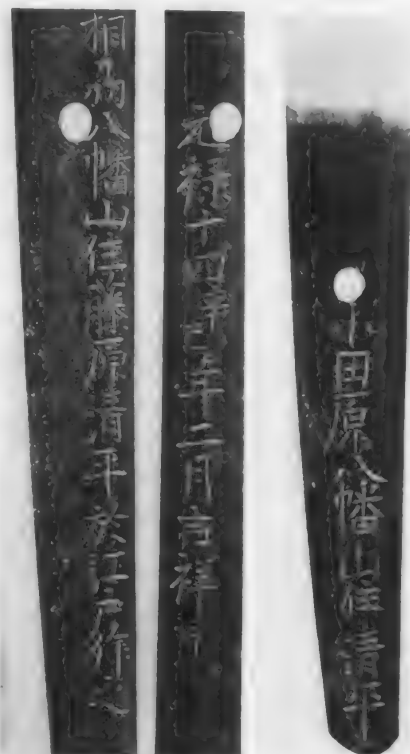 相州八幡山住藤原清平於江戸
元禄十四辛巳年二月吉祥日
小田原八幡山住清平